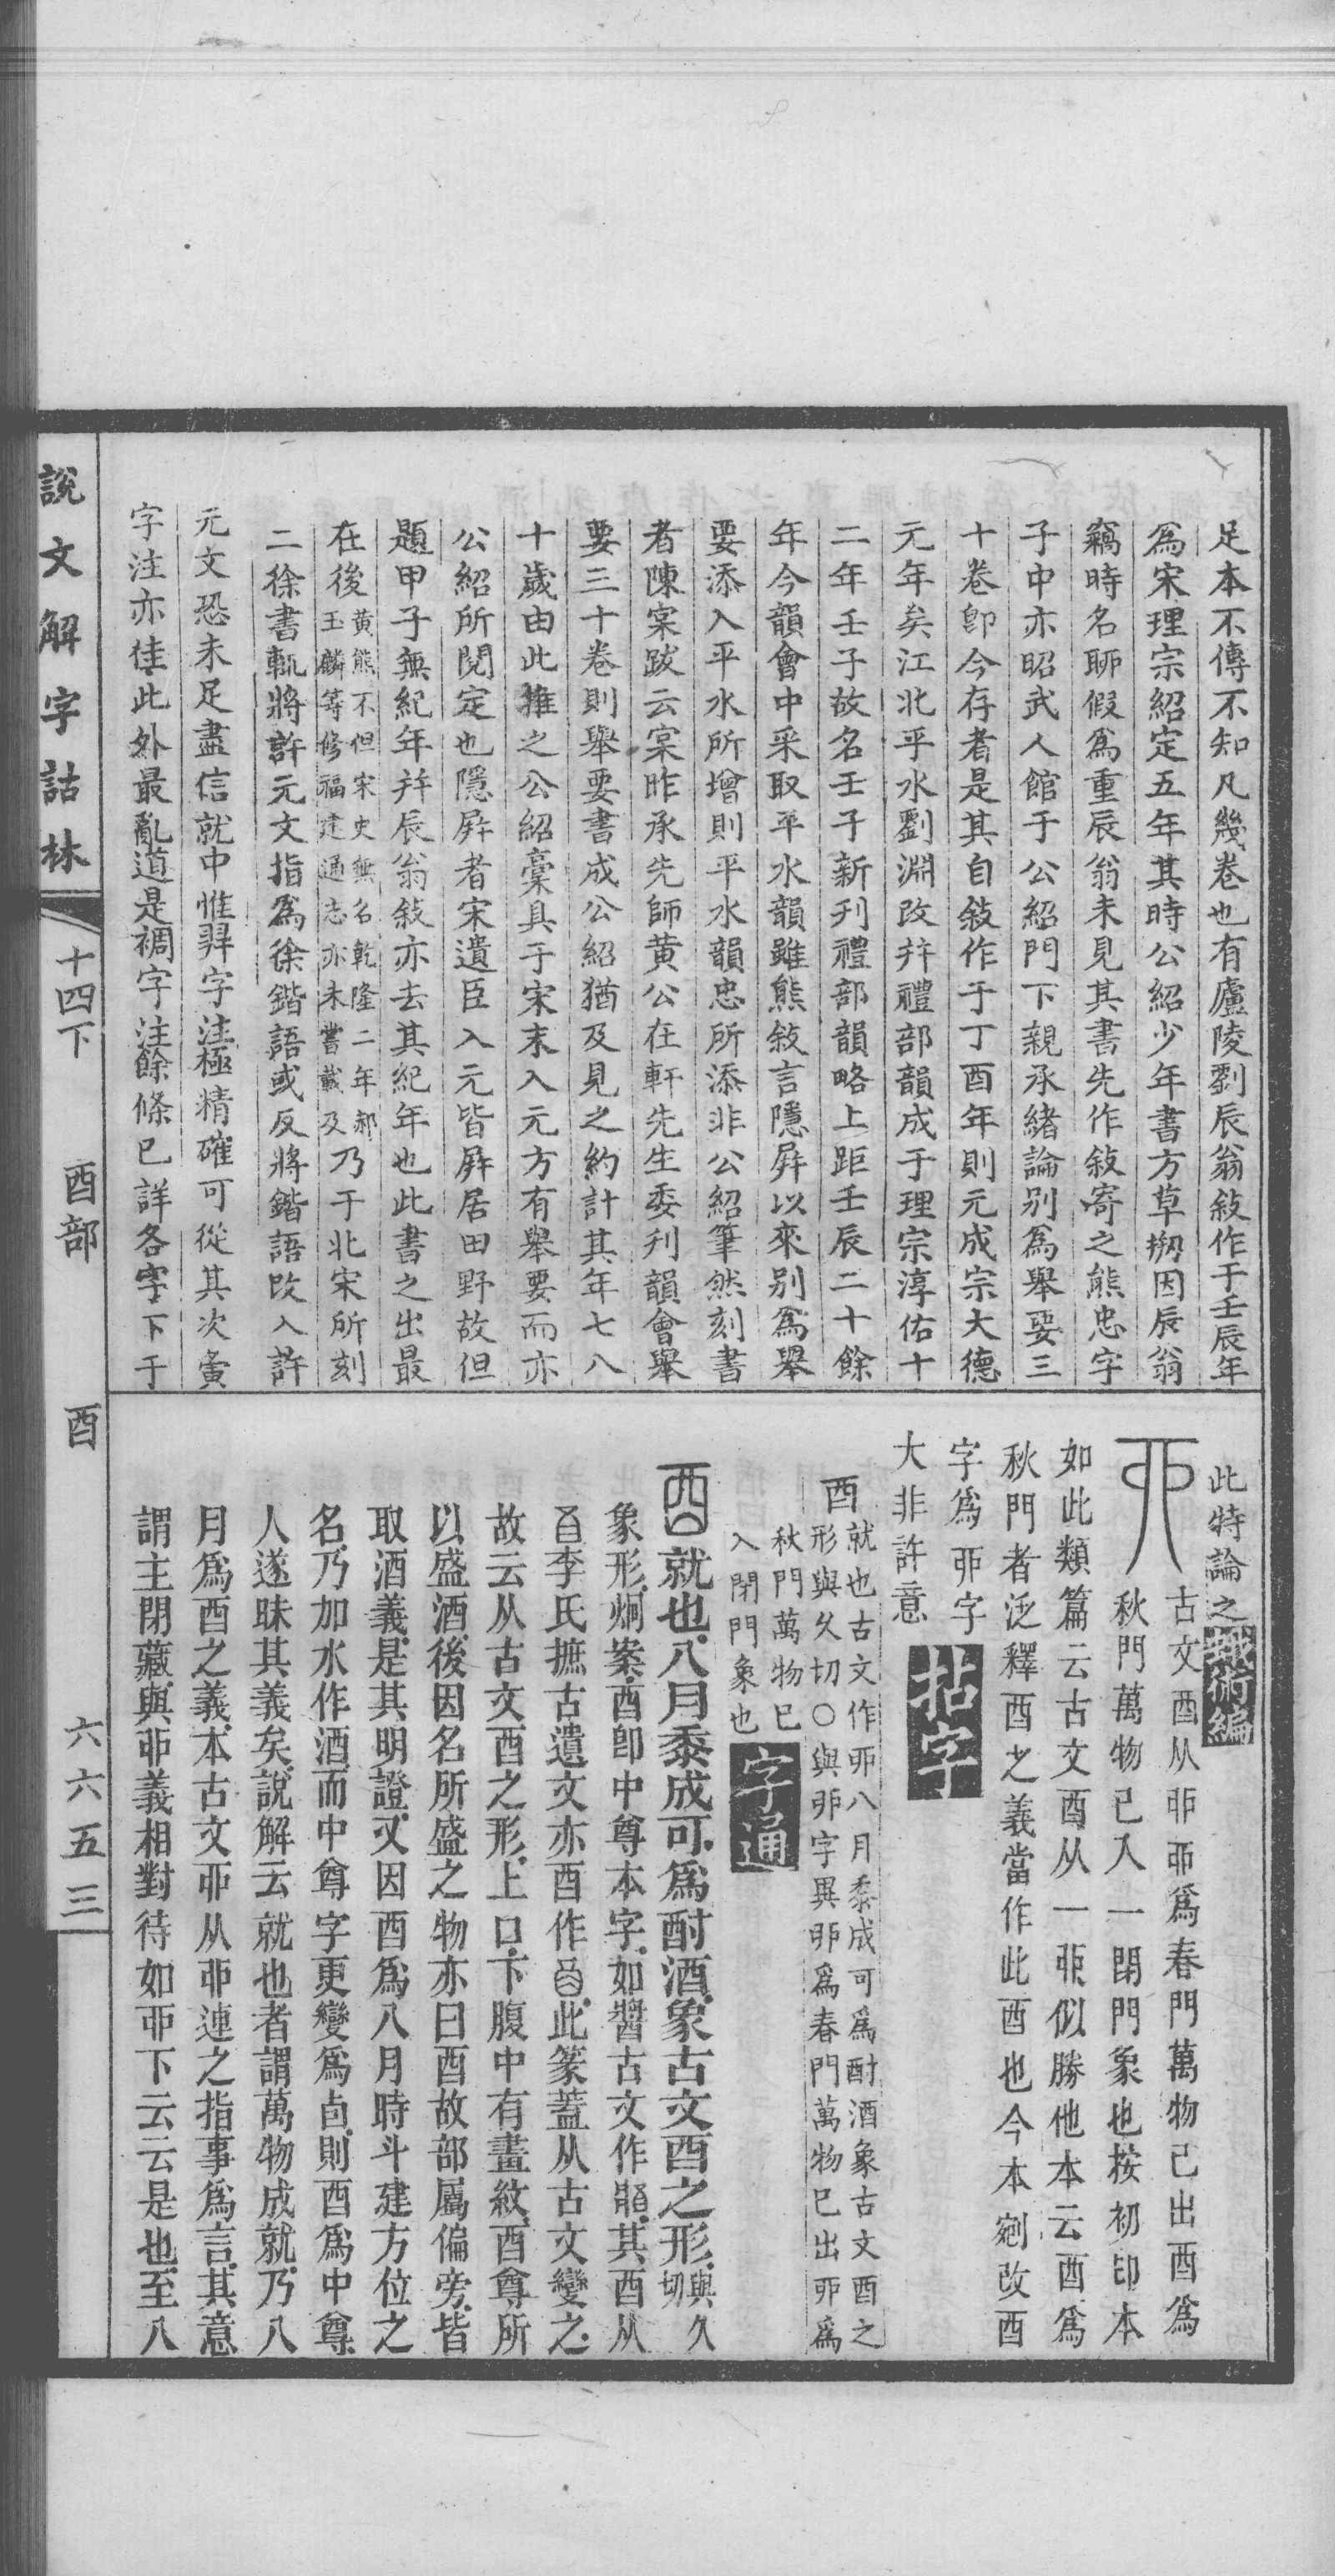 足本不傳不知凡幾卷也有廬陵劉辰翁敍作于壬辰年
爲宋理宗紹定五年其時公紹少年書方草刱因辰翁
竊時名聊假爲重辰翁未見其書先作敍寄之熊忠字
子中亦昭武人館于公紹門下親承緒論別爲舉要三
十卷卽今存者是其自敍作于丁酉年則元成宗大德
元年矣江北平水劉淵改幷禮部韻成于理宗淳佑十
二年壬子故名壬子新刋禮部韻略上距壬辰二十餘
年今韻會中采取平水韻雖熊敍言隱屛以來別爲舉
要添入平水所增則平水韻忠所添非公紹筆然刻書
者陳寀跋云寀昨承先師黃公在軒先生委刋韻會舉
要三十卷則舉要書成公紹猶及見之約計其年七八
十歲由此推之公紹稾具于宋末入元方有舉要而亦
公紹所閱定也隱屛者宋遺臣入元皆屛居田野故但
題甲子無紀年幷辰翁敍亦去其紀年也此書之出最
在後黃熊不但宋史無名乾隆二年郝玉麟等修福建通志亦未嘗載及乃于北宋所刻
二徐書輒將許元文指爲徐鍇語或反將鍇語改入許
元文恐未足盡信就中惟羿字注極精確可從其次夤
字注亦佳此外最亂道是禂字注餘條已詳各字下于
此特論之蛾術編
丣古文酉从丣丣爲春門萬物已出酉爲
秋門萬物已入一閉門象也按初印本
如此類篇云古文酉从一丣似勝他本云酉爲
秋門者泛釋酉之義當作此酉也今本剜改酉
字爲丣字
大非許意拈字
酉就也古文作丣八月黍成可爲酎酒象古文酉之
形與久切○與丣字異丣爲春門萬物已出丣爲
秋門萬物已
入閉門象也字通
酉就也八月黍成可爲酎酒象古文酉之形與久切
象形炯案酉卽中尊本字如醬古文作其酉从
李氏摭古遺文亦酉作此篆蓋从古文變之
故云从古文酉之形上口下腹中有畫紋酉尊所
以盛酒後因名所盛之物亦曰酉故部屬偏旁皆
取酒義是其明證又因酉爲八月時斗建方位之
名乃加水作酒而中尊字更變爲卣則酉爲中尊
人遂昧其義矣說解云就也者謂萬物成就乃八
月爲酉之義本古文丣从丣連之指事爲言其意
謂主閉藏與丣義相對待如丣下云云是也至八
說文解字詁林
十四下 酉部 酉 六六五三